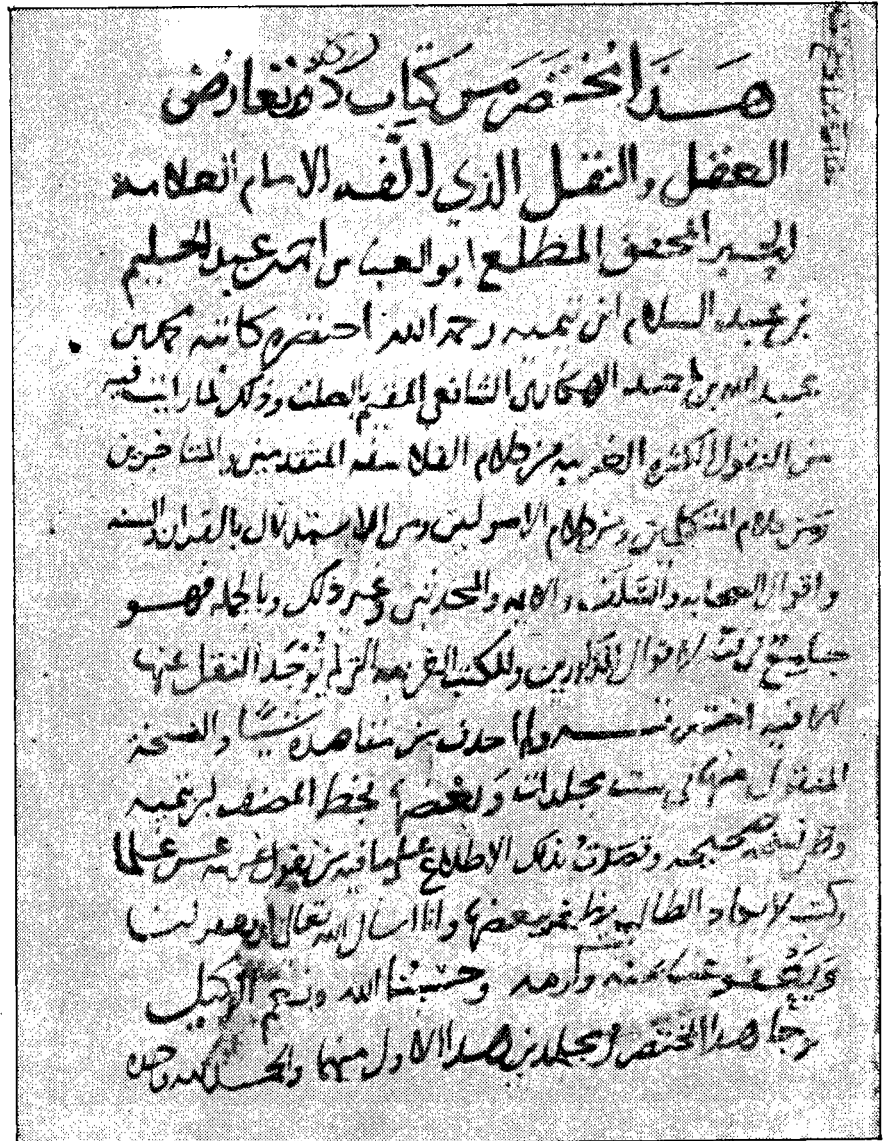 هذا مختصر من كتاب درء تعارض
العقل والنقل الذي الفه الامام العلامه
الحبر المحقق المطلع ابو العباس احمد بن عبد الحليم
بن عبد السلام ابن تيميه رحمه الله اختصره كاتبه محمد بن
عبد الله بن احمد الهكاري الشافعي المقيم بالصلت وذلك لما رايت فيه
من النقول الكثيره الغريبه من كلام الفلاسفه المتقدمين والمتاخرين
ومن كلام المتكلمين ومن كلام الاصوليين ومن الاستدلال بالقران والسنه
واقوال الصحابه والسلف والايمه والمحدثين وغير ذلك وبالجمله فهو
جامع لاقوال المذكورين وللكتب الغريبه التي لم يُوجَد النقل عنها
فيه شيئا والنسخة
المنقول منها في ست مجلدات وبعضها بخط المصنف ابن تيميه
وهي نسخه صحيحه وقصدت بذلك الاطلاع على ما فيه من نقول غريبه
الطالب يظفر ببعضها وانا اسال الله تعالى ان يغفر لنا
ويعفو عنا بمنه وكرمه وحسبُنا الله ونعم الوكيل
وجا هذا المختصر في مجلدين هذا الاول منهما والحمد لله وحده